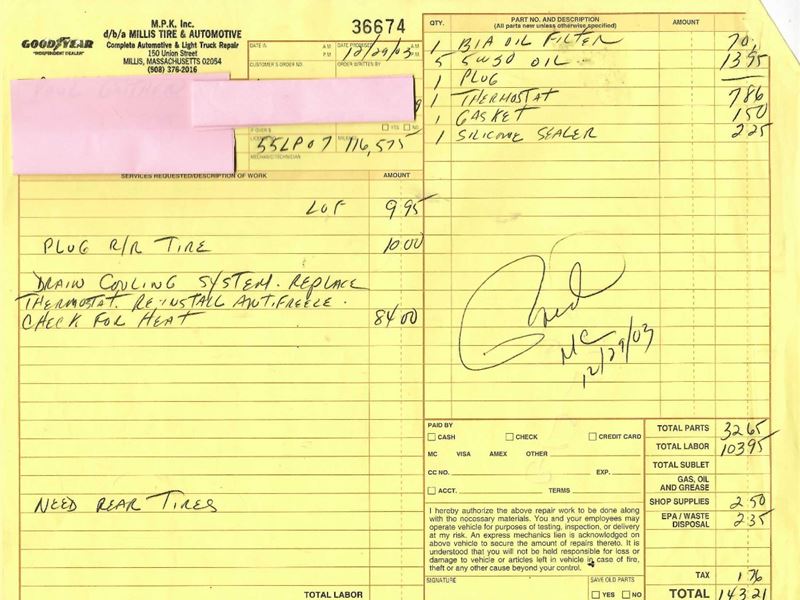 GOODYEAR
"INDEPENDENT DEALER"
M.P.K. Inc.
d/b/a MILLIS TIRE & AUTOMOTIVE
Complete Automotive & Light Truck Repair
150 Union Street
MILLIS, MASSACHUSETTS 02054
(508) 376-2016
36674
DATE IN A.M. P.M.
DATE PROMISED A.M. P.M.
12/29/03
CUSTOMER'S ORDER NO.
ORDER WRITTEN BY
YES NO
55LP07
MILEAGE
116,575
MECHANIC/TECHNICIAN
SERVICES REQUESTED/DESCRIPTION OF WORK AMOUNT
LOF 9 95
PLUG R/R TIRE 10 00
DRAIN COOLING SYSTEM. REPLACE
THERMOSTAT. RE-INSTALL ANTIFREEZE.
CHECK FOR HEAT 84 00
NEED REAR TIRES
TOTAL LABOR
QTY. PART NO. AND DESCRIPTION AMOUNT
(All parts new unless otherwise specified)
1 OIL FILTER
5 5W30 OIL 13 95
1 PLUG
1 THERMOSTAT 7 86
1 GASKET 1 50
1 SILICONE SEALER 2 25
MC
12/29/03
PAID BY
CASH CHECK CREDIT CARD
MC VISA AMEX OTHER
CC NO. EXP.
ACCT. TERMS
I hereby authorize the above repair work to be done along
with the necessary materials. You and your employees may
operate vehicle for purposes of testing, inspection, or delivery
at my risk. An express mechanics lien is acknowledged on
above vehicle to secure the amount of repairs thereto. It is
understood that you will not be held responsible for loss or
damage to vehicle or articles left in vehicle in case of fire,
theft or any other cause beyond your control.
SIGNATURE
SAVE OLD PARTS
YES NO
TOTAL PARTS 32 65
TOTAL LABOR 103 95
TOTAL SUBLET
GAS, OIL
AND GREASE
SHOP SUPPLIES 2 50
EPA / WASTE
DISPOSAL 2 35
TAX 1 76
TOTAL 143.21